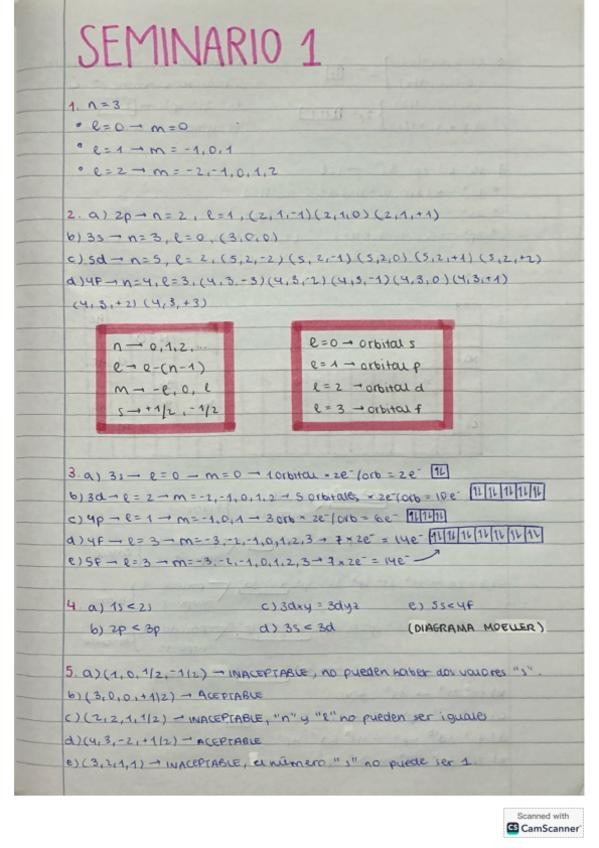 SEMINARIO 1
1. n=3
• l=0 → m=0
• l=1 → m = -1,0,1
• l=2 → m = -2,-1,0,1,2
2. a) 2p → n=2, l=1, (2,1,-1) (2,1,0) (2,1,+1)
b) 3s → n=3, l=0, (3,0,0)
c) 5d → n=5, l=2, (5,2,-2) (5,2,-1) (5,2,0) (5,2,+1) (5,2,+2)
d) 4F → n=4, l=3, (4,3,-3) (4,3,-2) (4,3,-1) (4,3,0) (4,3,+1)
(4,3,+2) (4,3,+3)
n → 0,1,2,...
l → 0-(n-1)
m → -l, 0, l
s → +1/2, -1/2
l=0 → orbital s
l=1 → orbital p
l=2 → orbital d
l=3 → orbital f
3. a) 3s → l=0 → m=0 → 1 orbital × 2e⁻/orb = 2e⁻ [1l]
b) 3d → l=2 → m=-2,-1,0,1,2 → 5 orbitales × 2e⁻/orb = 10e⁻ [1l|1l|1l|1l|1l]
c) 4p → l=1 → m=-1,0,1 → 3 orb × 2e⁻/orb = 6e⁻ [1l|1l|1l]
d) 4F → l=3 → m=-3,-2,-1,0,1,2,3 → 7×2e⁻ = 14e⁻ [1l|1l|1l|1l|1l|1l|1l]
e) 5F → l=3 → m=-3,-2,-1,0,1,2,3 → 7×2e⁻ = 14e⁻
4. a) 1s < 2s c) 3dxy = 3dyz e) 5s < 4F
b) 2p < 3p d) 3s < 3d (DIAGRAMA MOELLER)
5. a) (1,0,1/2,-1/2) → INACEPTABLE, no pueden haber dos valores "s".
b) (3,0,0,+1/2) → ACEPTABLE
c) (2,2,1,1/2) → INACEPTABLE, "n" y "l" no pueden ser iguales
d) (4,3,-2,+1/2) → ACEPTABLE
e) (3,2,1,1) → INACEPTABLE, el número "s" no puede ser 1.
Scanned with
CS CamScanner